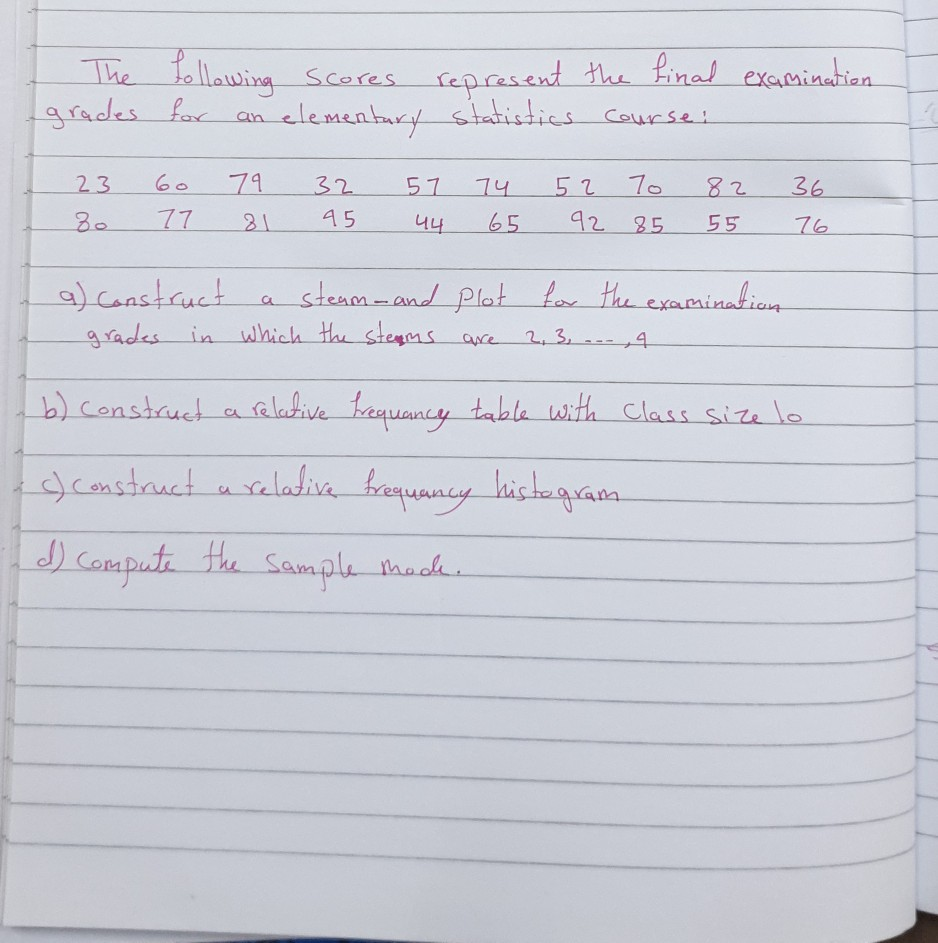 The following scores represent the final examination
grades for an elementary statistics course:
23 60 79 32 57 74 52 70 82 36
80 77 81 95 44 65 92 85 55 76
a) Construct a steam-and plot for the examination
grades in which the steams are 2, 3, ---, 9
b) Construct a relative frequancy table with Class size 10
c) Construct a relative frequancy histogram
d) Compute the Sample mode.